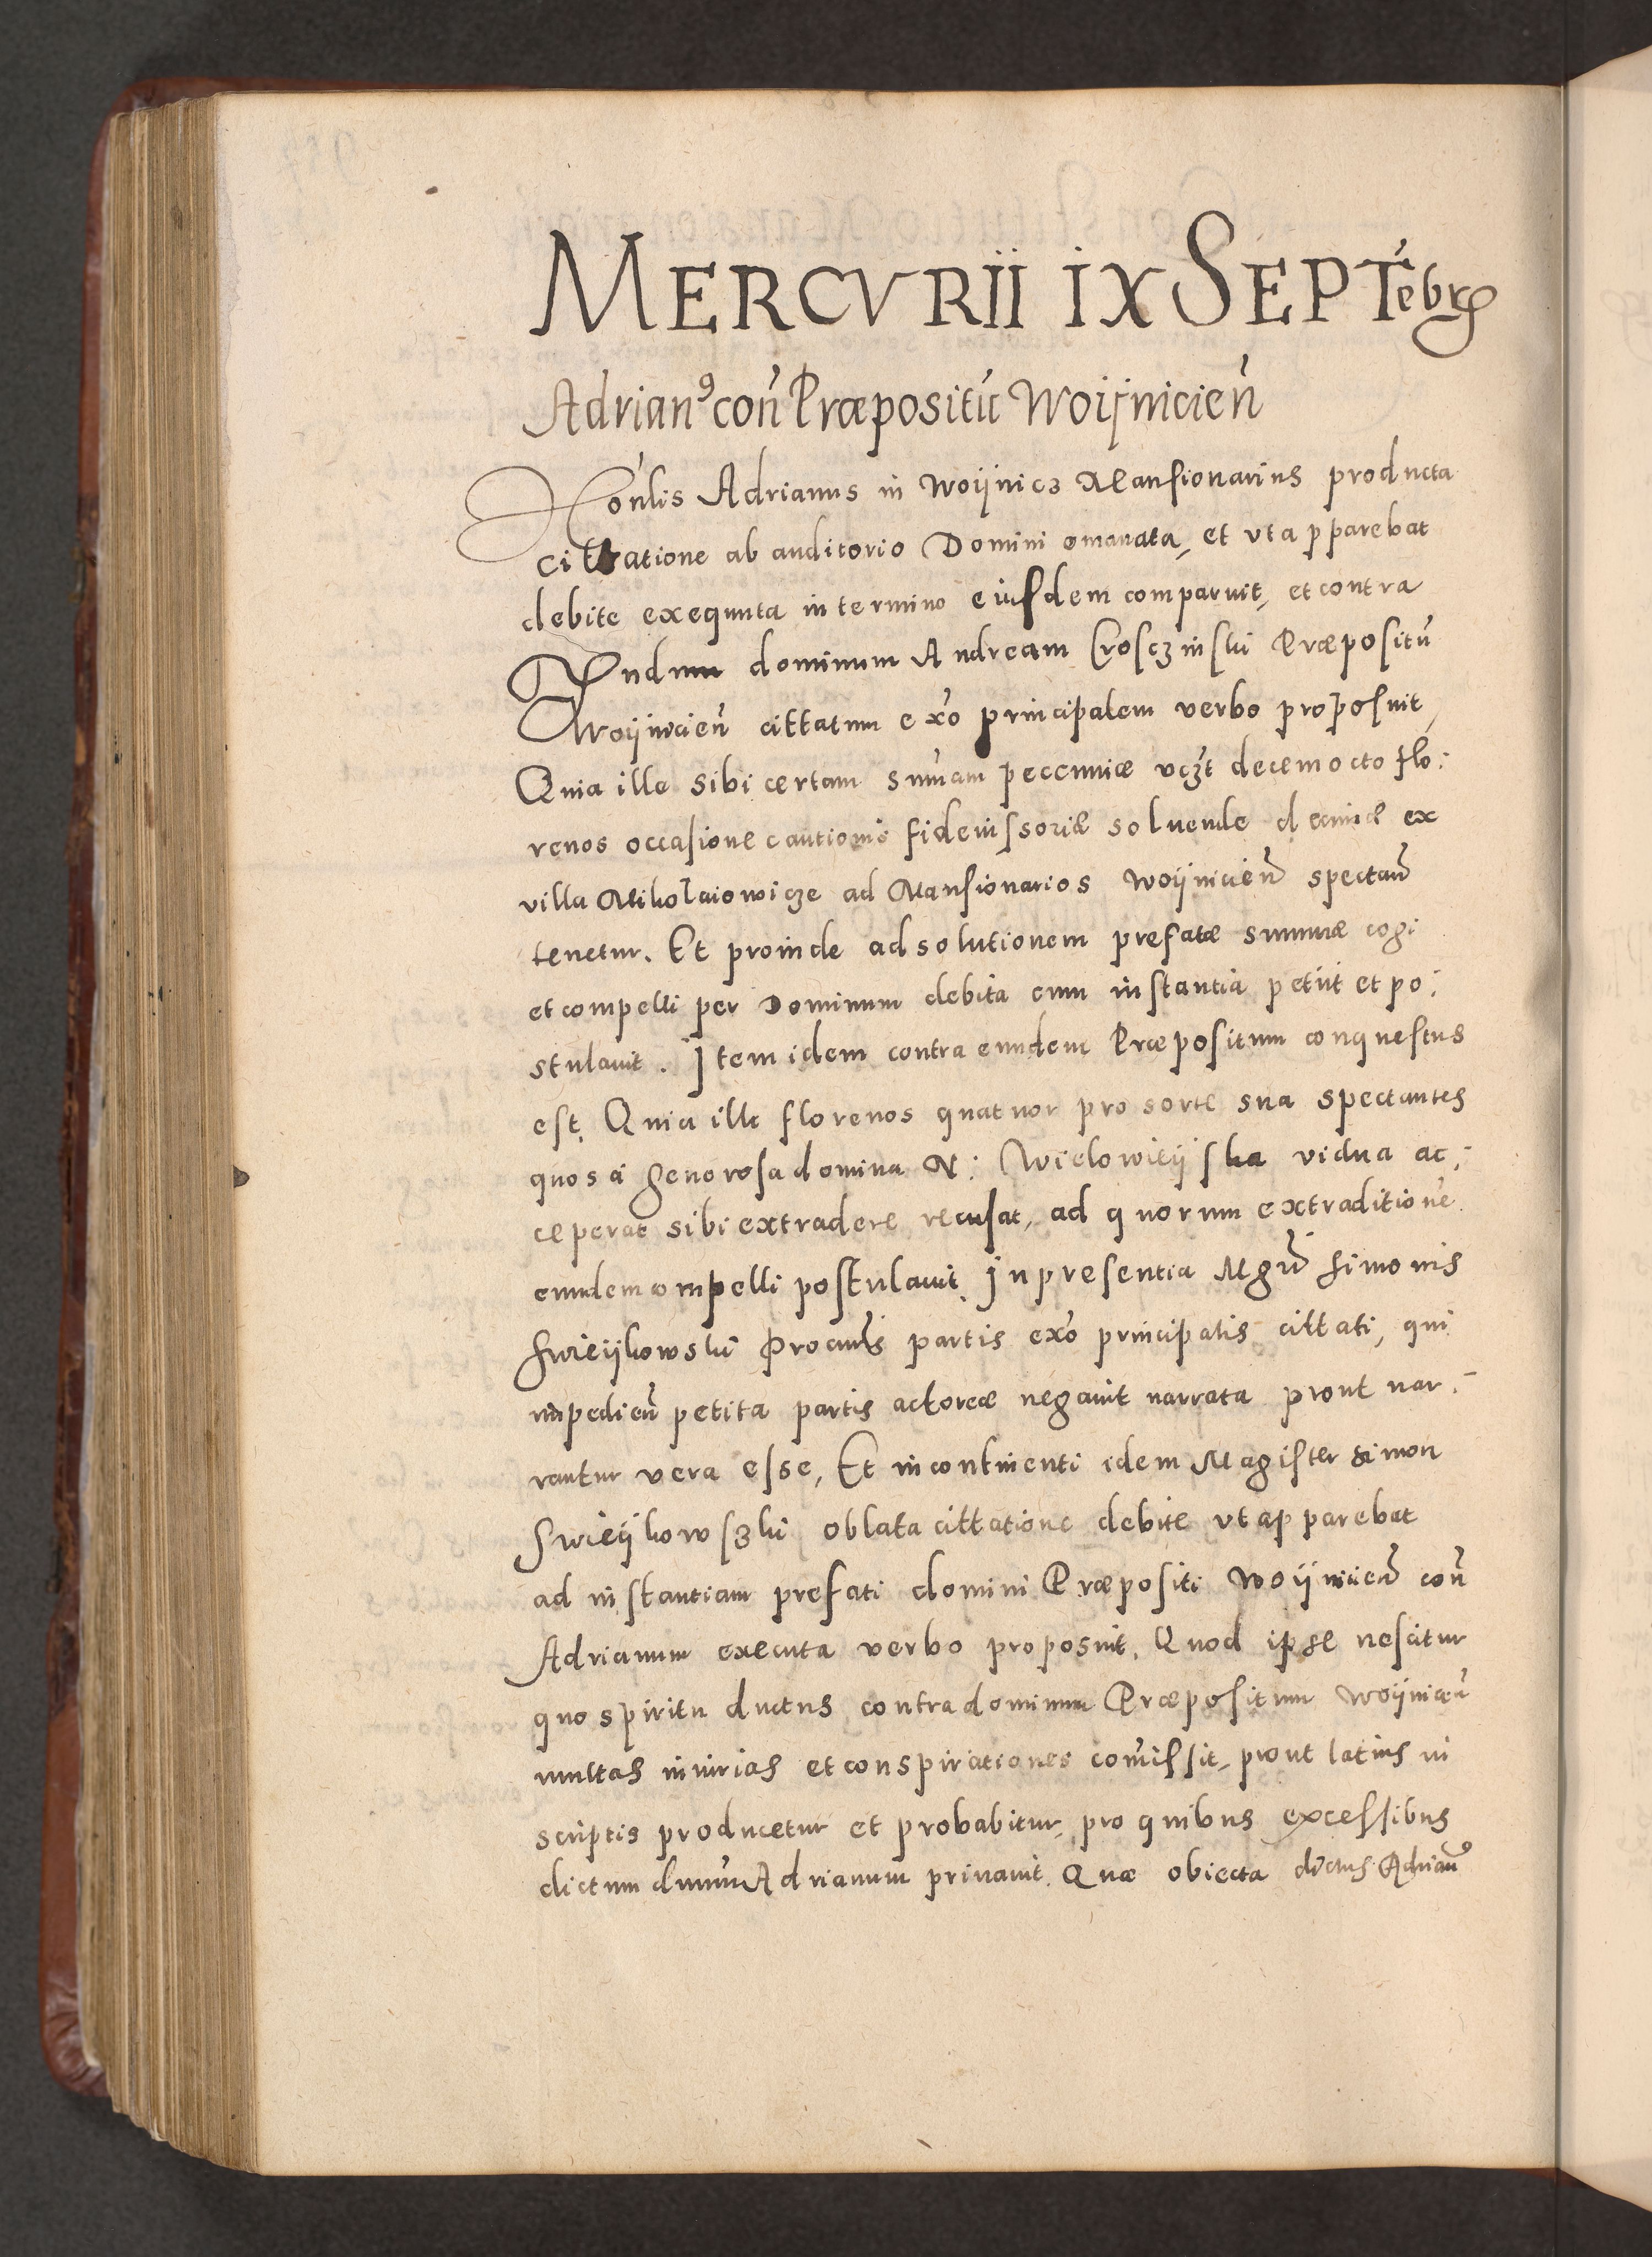 MERCVRII IX SEPTẽbrꝭ
Adrianꝰ coñ Præpositũ Woijnicień
Honlis Adrianus in Woijnicz Mansionarius producta
cittatione ab auditorio Domini emanata, et vt apparebat
debite exequuta in termino eiusdem comparuit, et contra
Vndum dominum Andream Crosczinski Præpositũ
Woijnicień cittatum exo principalem verbo proposuit,
Quia ille sibi certam sum̃am peccuniæ vczt decem octo flo:
renos occasione cautionis fideiussoriæ soluende decimæ ex
villa Mikolaiowicze ad Mansionarios Woijnicień spectań
tenetur. Et proinde ad solutionem prefatæ summæ cogi
et compelli per Dominum debita cum instantia petiit et po:
stulauit. Item idem contra eundem Præpositum conquestus
est, Quia ille florenos quatuor pro sorte sua spectantes
quos á generosa domina N: Wielowieijska vidua ac:
ceperat sibi extradere recusat, ad quorum extraditionẽ
eundem compelli postulauit. In presentia Mgri Simonis
Swieijkowski Procuris partis exo principalis cittati, qui
impedień petita partis actoreæ negauit narrata prout nar:
rantur vera esse, Et in continenti idem Magister Simon
Swieijkowszki oblata cittatione debite vt apparebat
ad instantiam prefati domini Præpositi Woijnicień coñ
Adrianum executa verbo proposuit. Quod ipse nescitur
quo spiritu ductus contra dominum Præpositum Woijnicień
multas iniurias et conspirationes com̃issit, prout latius in
scriptis producetur et probabitur, pro quibus excessibus
dictum dnum Adrianum priuauit. Quæ obiecta dictus Adrianꝰ